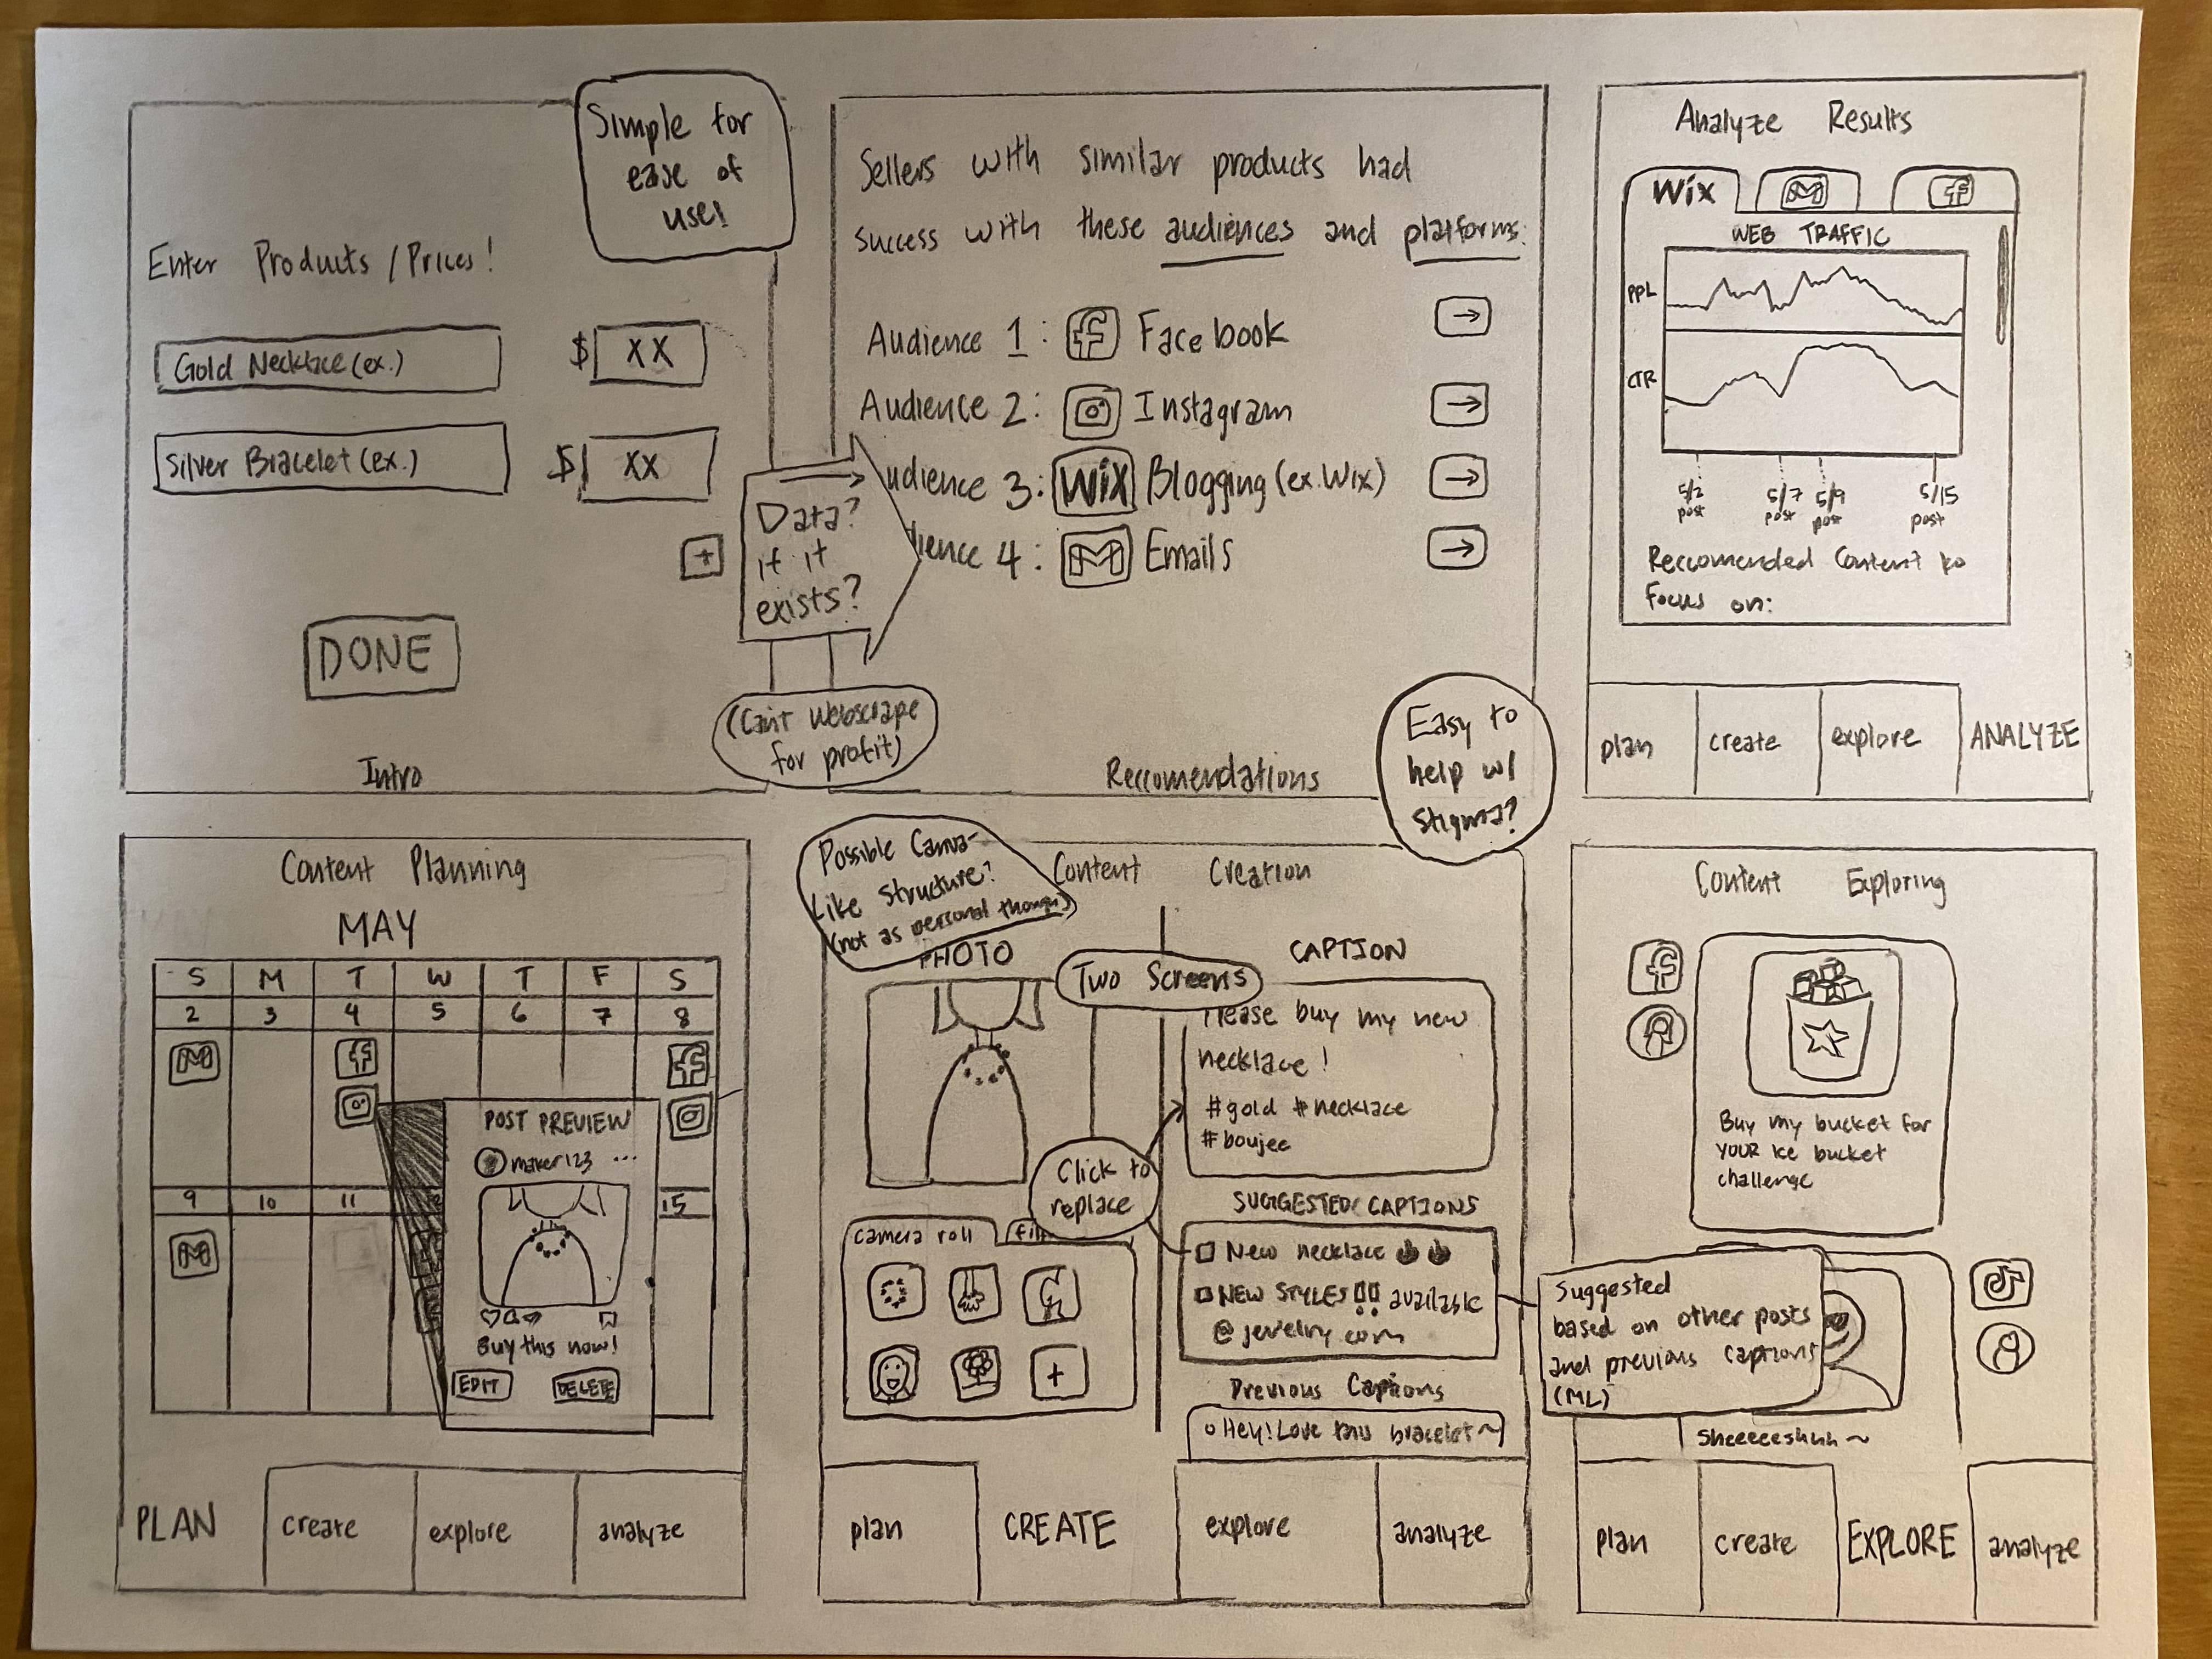 Simple for
ease of
use!
Enter Products / Prices!
Gold Necklace (ex.)
$ XX
Silver Bracelet (ex.)
$ XX
+
DONE
Intro
Data?
if it
exists?
(Can't Webscrape
for profit)
Sellers with similar products had
success with these audiences and platforms:
Audience 1: f Facebook
Audience 2: Instagram
udience 3: WiX Blogging (ex. Wix)
dience 4: M Emails
Reccomendations
Easy to
help w/
Stigma?
Analyze Results
Wix M f
WEB TRAFFIC
PPL
CTR
5/2
post
5/7
post
5/9
post
5/15
post
Reccomended Content to
Focus on:
plan create explore ANALYZE
Content Planning
MAY
S M T W T F S
2 3 4 5 6 7 8
M f f
POST PREVIEW
maker123 ...
9 10 11 15
M
Buy this now!
EDIT DELETE
PLAN create explore analyze
Possible Canva-
Like structure?
(not as personal though)
Content Creation
PHOTO
Two Screens
CAPTION
Please buy my new
necklace!
#gold #necklace
#boujee
Click to
replace
SUGGESTED CAPTIONS
New necklace
NEW STYLES!! available
@ jewelry.com
camera roll fil
+
Previous Captions
Hey! Love this bracelet~
plan CREATE explore analyze
Content Exploring
f
Buy my bucket for
YOUR ice bucket
challenge
Suggested
based on other posts
and previous captions
(ML)
Sheeeeeshhh ~
plan create EXPLORE analyze